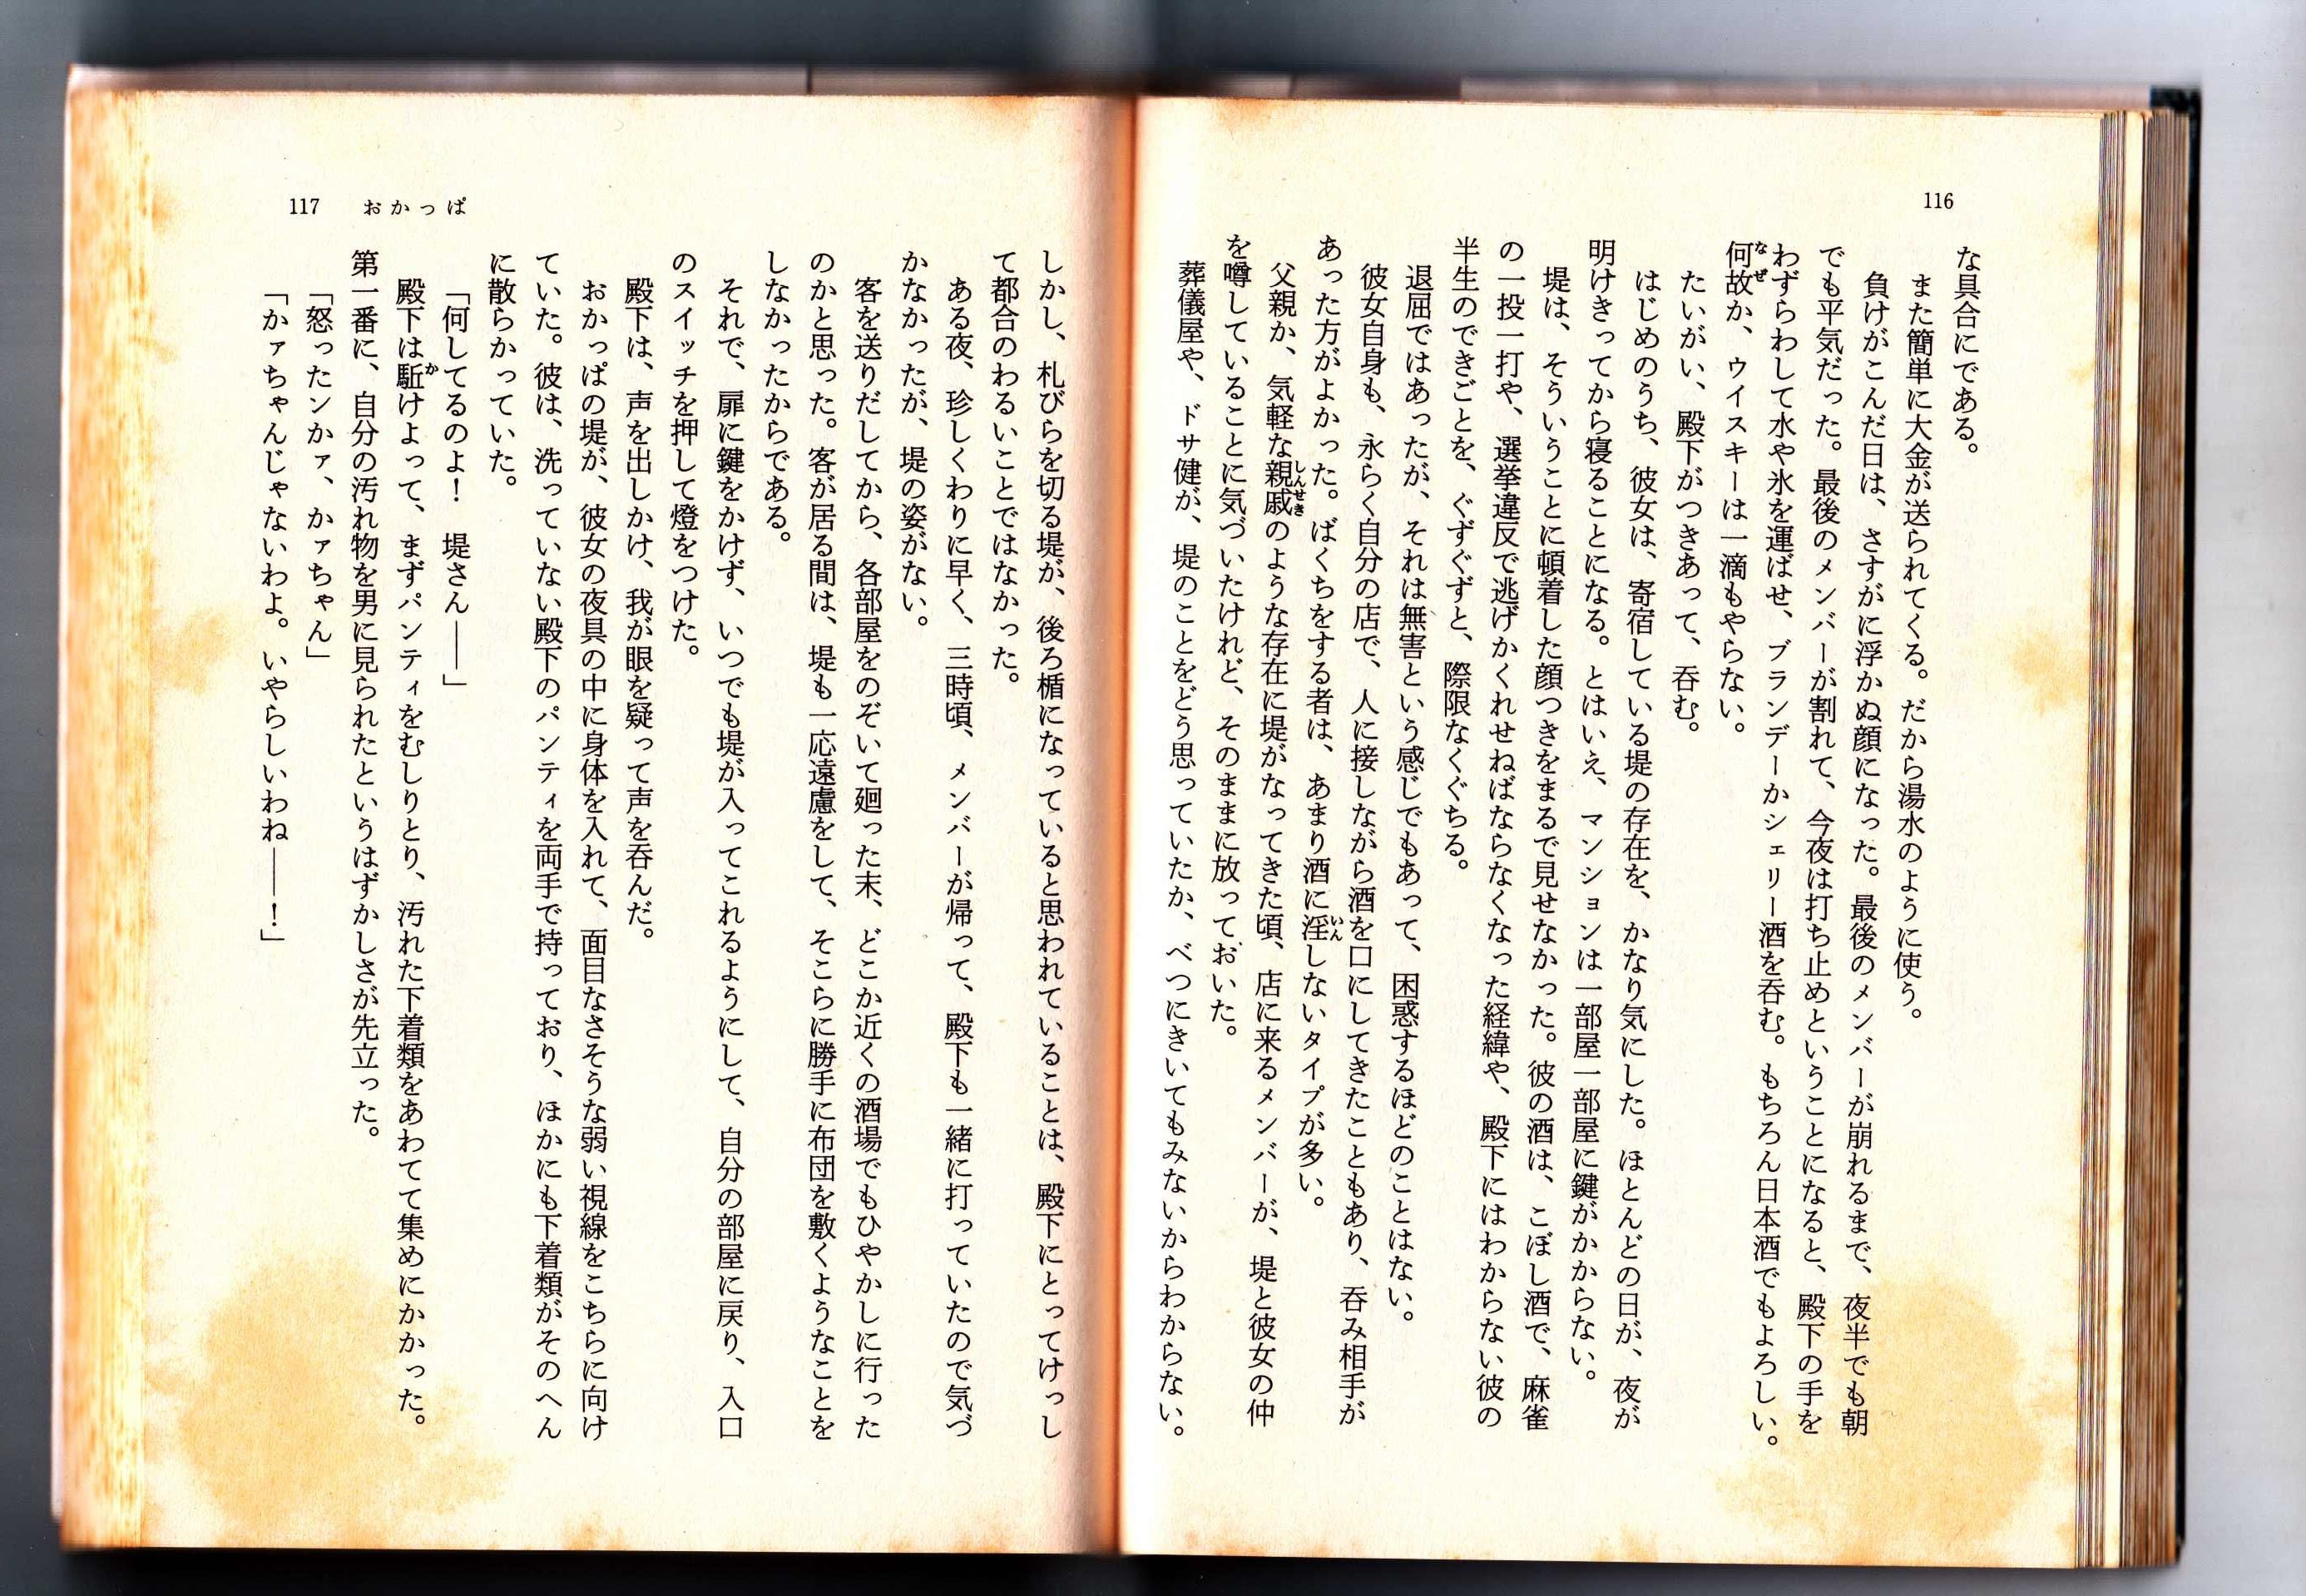 116
な具合にである。
また簡単に大金が送られてくる。だから湯水のように使う。
負けがこんだ日は、さすがに浮かぬ顔になった。最後のメンバーが崩れるまで、夜半でも朝
でも平気だった。最後のメンバーが割れて、今夜は打ち止めということになると、殿下の手を
わずらわして水や氷を運ばせ、ブランデーかシェリー酒を呑む。もちろん日本酒でもよろしい。
何故なぜか、ウイスキーは一滴もやらない。
たいがい、殿下がつきあって、呑む。
はじめのうち、彼女は、寄宿している堤の存在を、かなり気にした。ほとんどの日が、夜が
明けきってから寝ることになる。とはいえ、マンションは一部屋一部屋に鍵がかからない。
堤は、そういうことに頓着した顔つきをまるで見せなかった。彼の酒は、こぼし酒で、麻雀
の一投一打や、選挙違反で逃げかくれせねばならなくなった経緯や、殿下にはわからない彼の
半生のできごとを、ぐずぐずと、際限なくぐちる。
退屈ではあったが、それは無害という感じでもあって、困惑するほどのことはない。
彼女自身も、永らく自分の店で、人に接しながら酒を口にしてきたこともあり、呑み相手が
あった方がよかった。ばくちをする者は、あまり酒に淫いんしないタイプが多い。
父親か、気軽な親戚しんせきのような存在に堤がなってきた頃、店に来るメンバーが、堤と彼女の仲
を噂していることに気づいたけれど、そのままに放っておいた。
葬儀屋や、ドサ健が、堤のことをどう思っていたか、べつにきいてもみないからわからない。
117 おかっぱ
しかし、札びらを切る堤が、後ろ楯になっていると思われていることは、殿下にとってけっし
て都合のわるいことではなかった。
ある夜、珍しくわりに早く、三時頃、メンバーが帰って、殿下も一緒に打っていたので気づ
かなかったが、堤の姿がない。
客を送りだしてから、各部屋をのぞいて廻った末、どこか近くの酒場でもひやかしに行った
のかと思った。客が居る間は、堤も一応遠慮をして、そこらに勝手に布団を敷くようなことを
しなかったからである。
それで、扉に鍵をかけず、いつでも堤が入ってこれるようにして、自分の部屋に戻り、入口
のスイッチを押して燈をつけた。
殿下は、声を出しかけ、我が眼を疑って声を呑んだ。
おかっぱの堤が、彼女の夜具の中に身体を入れて、面目なさそうな弱い視線をこちらに向け
ていた。彼は、洗っていない殿下のパンティを両手で持っており、ほかにも下着類がそのへん
に散らかっていた。
「何してるのよ！　堤さん――」
殿下は駈かけよって、まずパンティをむしりとり、汚れた下着類をあわてて集めにかかった。
第一番に、自分の汚れ物を男に見られたというはずかしさが先立った。
「怒ったンかァ、かァちゃん」
「かァちゃんじゃないわよ。いやらしいわね――！」